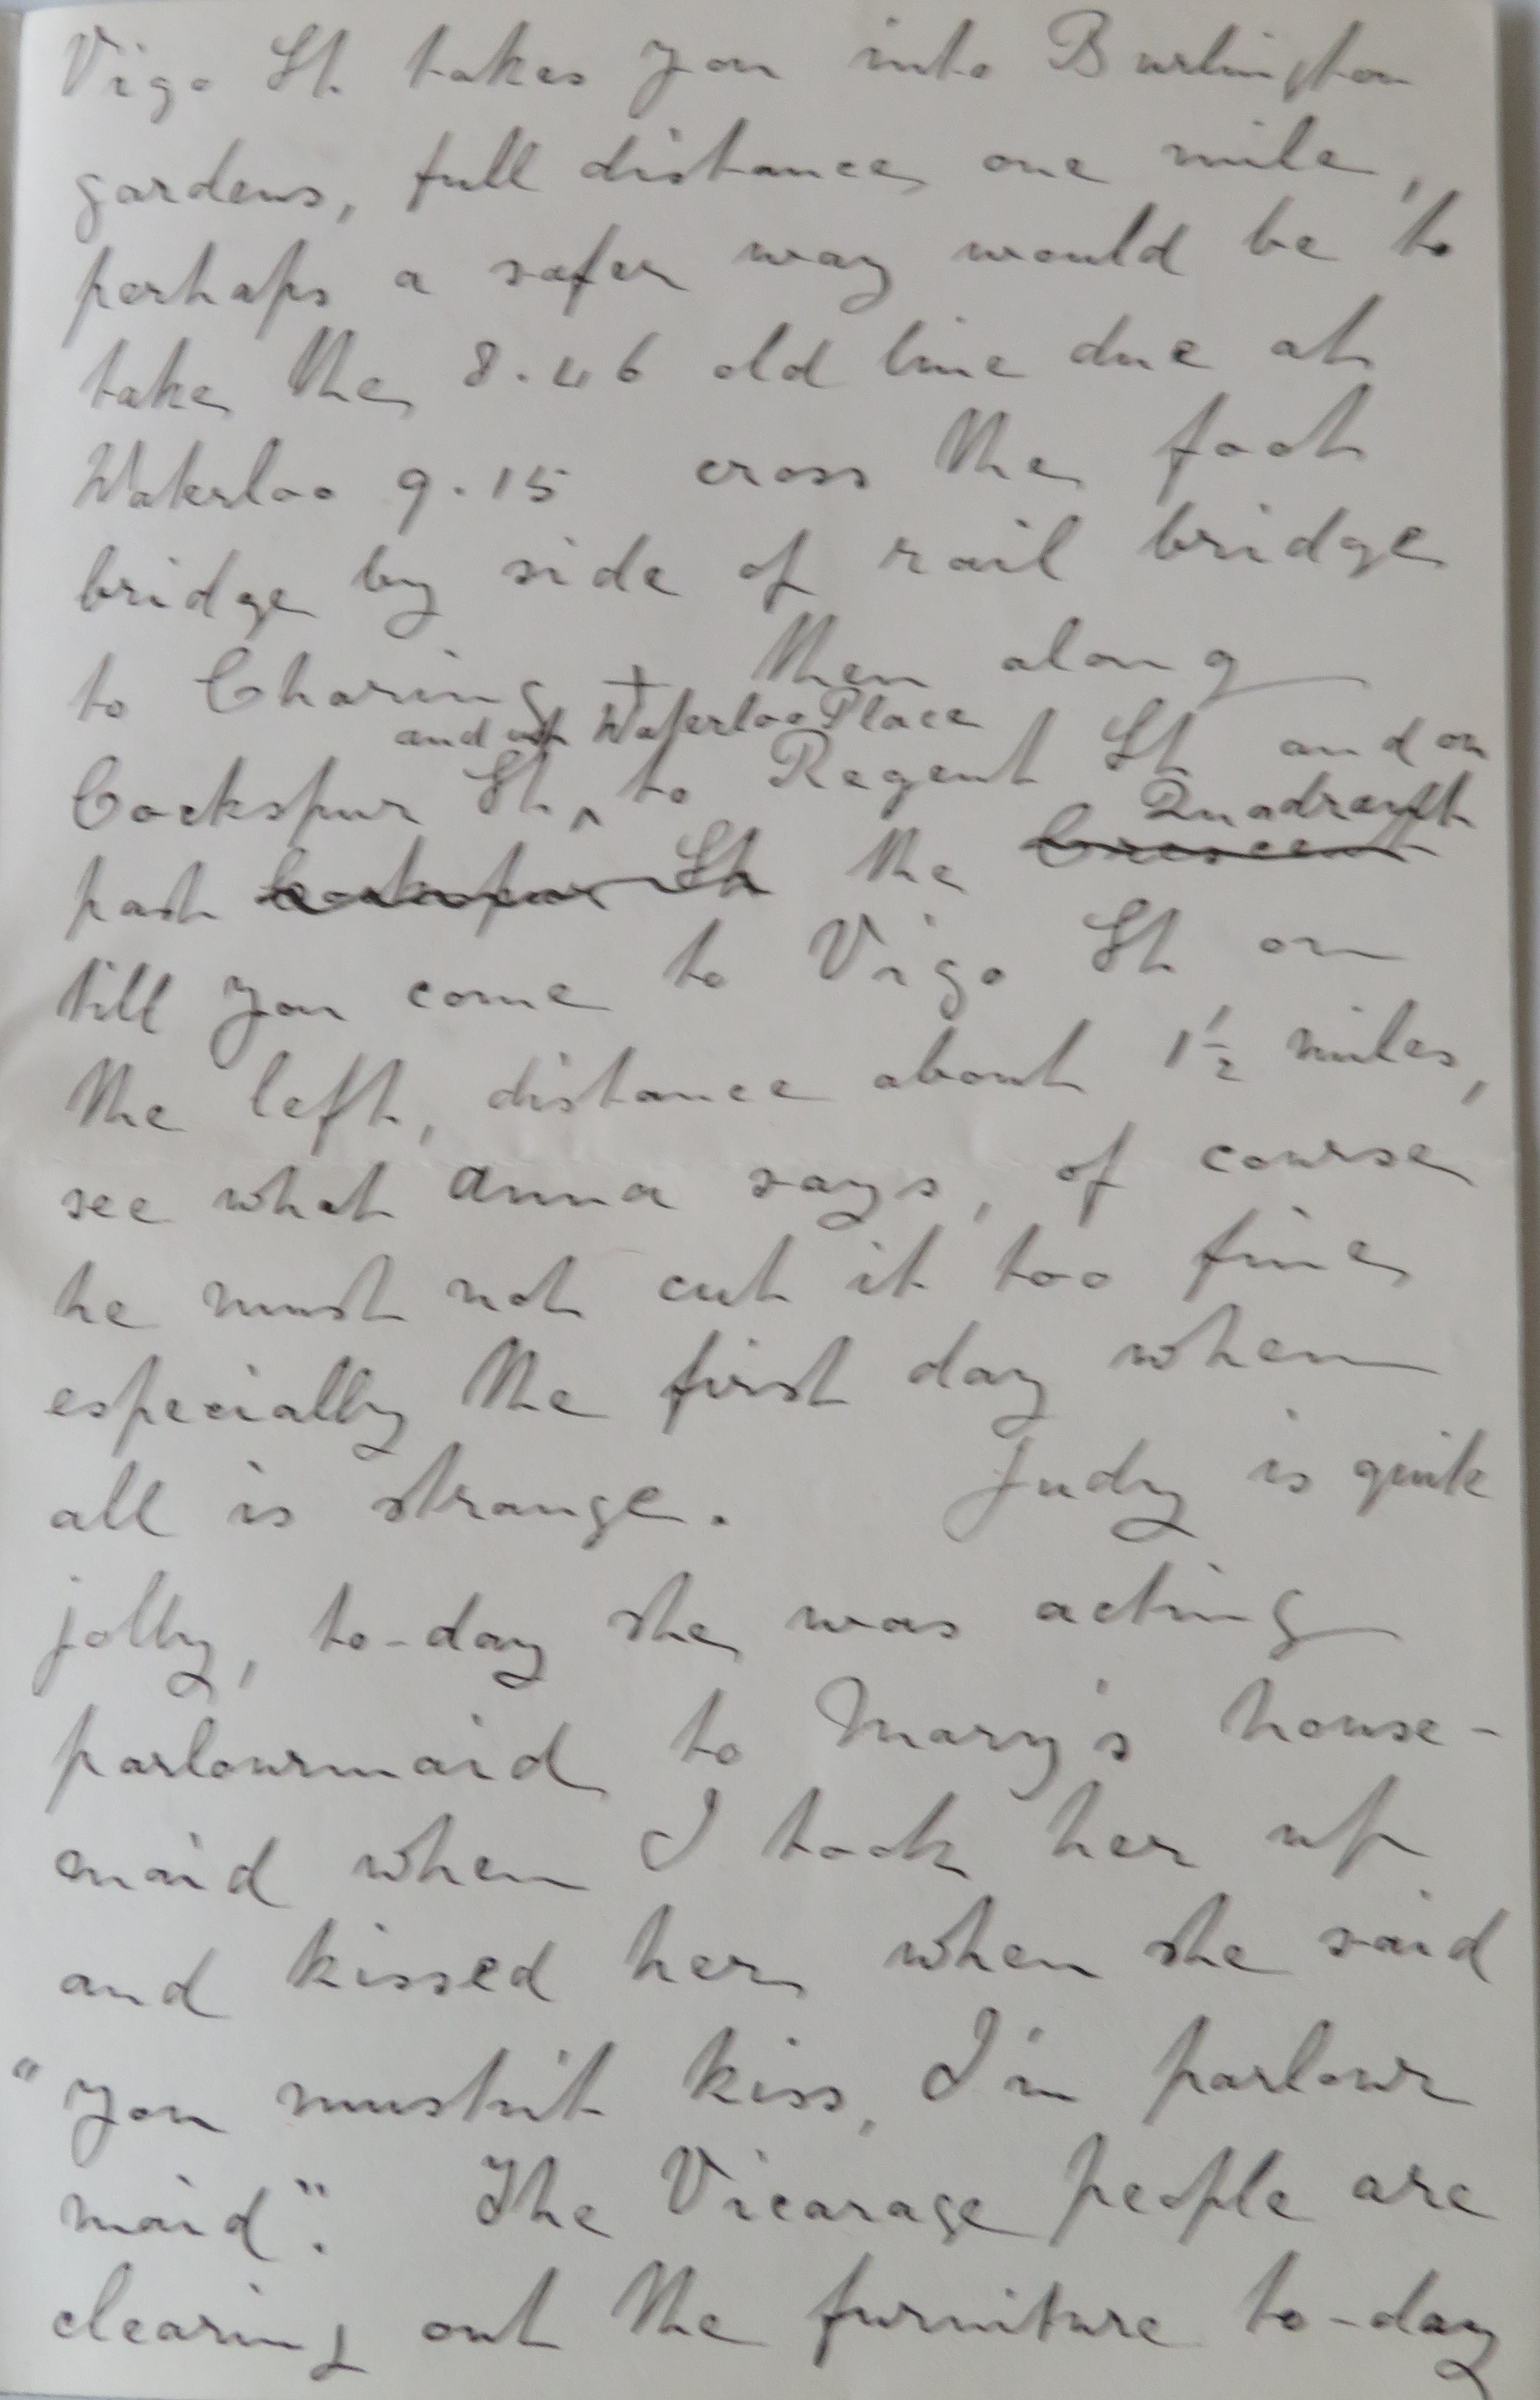 Vigo St. takes you into Burlington
gardens, full distance one mile,
perhaps a safer way would be to
take the 8.46 old line due at
Waterloo 9.15 cross the foot
bridge by side of rail bridge
to Charing + then along
and up Waterloo Place
Cockspur St. ^ to Regent St and on
Quadrant
past Cockspur St the Crescent
till you come to Vigo St on
the left, distance about 1½ miles,
see what Anna says, of course
he must not cut it too fine
especially the first day when
all is strange. Judy is quite
jolly, to-day she was acting
parlourmaid to Mary's house-
maid when I took her up
and kissed her when she said
"You mustn't kiss, I'm parlour
maid". The Vicarage people are
clearing out the furniture to-day